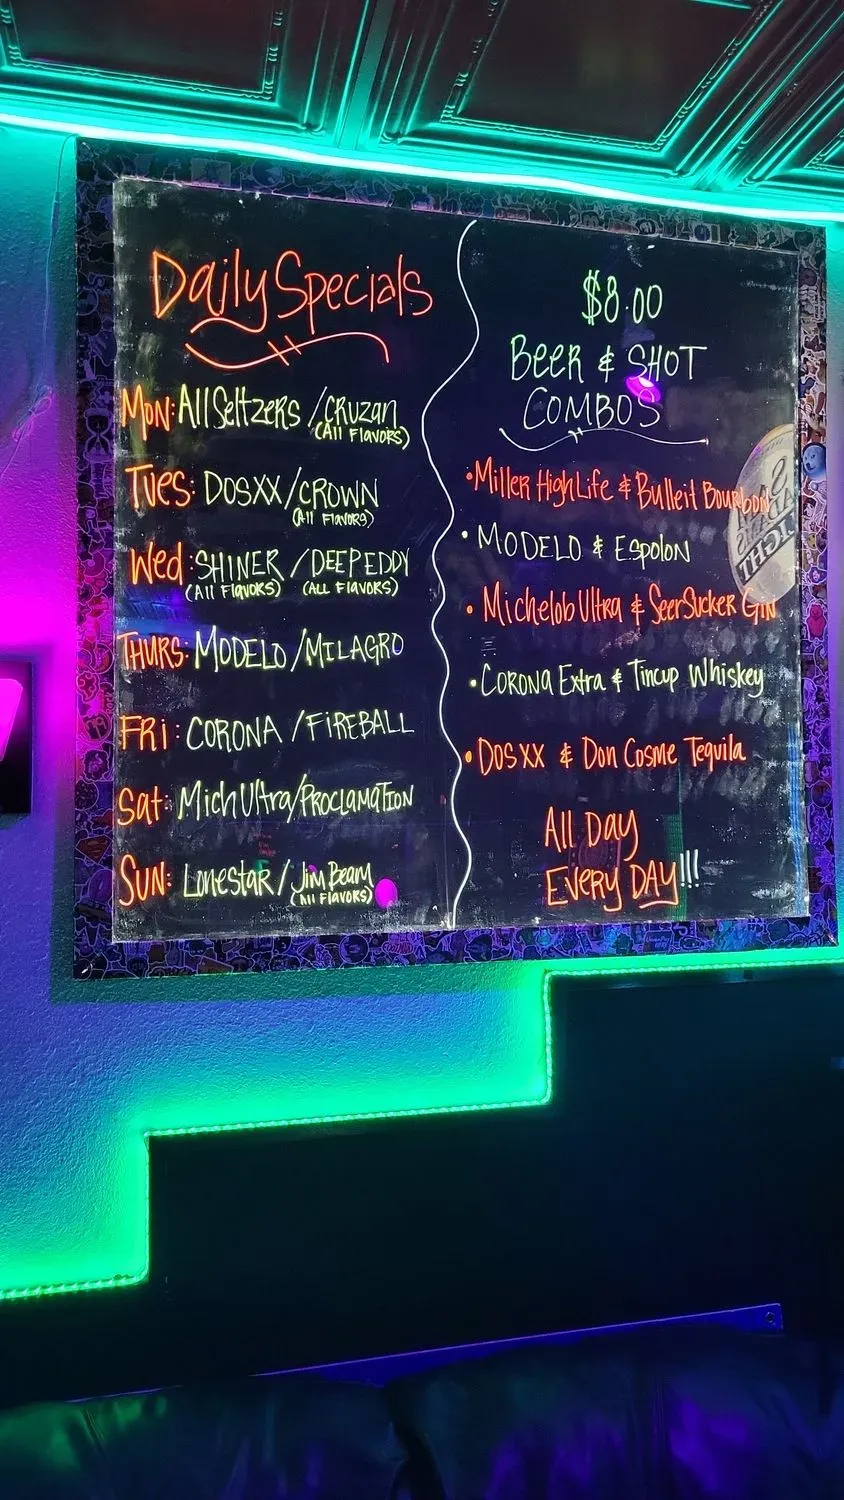 Daily Specials
Mon: All Seltzers / Cruzan
(All Flavors)
Tues: DosXX / CROWN
(All Flavors)
Wed: SHINER / DEEP EDDY
(All Flavors) (All Flavors)
THURS: MODELO / MILAGRO
FRI: CORONA / FIREBALL
Sat: Mich Ultra / PROCLAMATION
SUN: Lonestar / Jim Beam
(All Flavors)
$8.00
BEER & SHOT
COMBOS
• Miller High Life & Bulleit Bourbon
• MODELO & Espolon
• Michelob Ultra & SeerSucker Gin
• CORONA Extra & Tincup Whiskey
• DOSXX & Don Cosme Tequila
All Day
EVERY DAY!!!